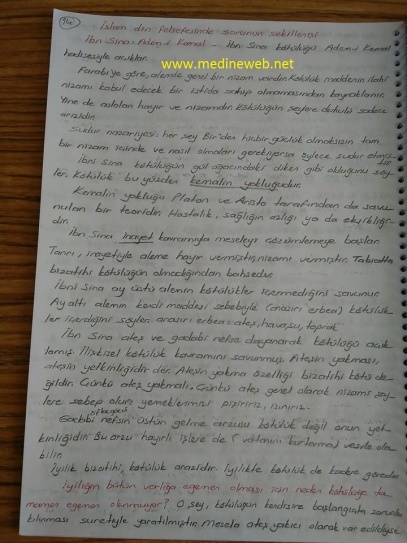 İslam din felsefesinde sorunun şekillenişi
İbn Sina: Adem-i Kemal – İbn Sina kötülüğü Adem-i Kemal
hadisesiyle açıklar.
www.medineweb.net
Farabi'ye göre, alemde genel bir nizam vardır. Kötülük maddenin ilahi
nizamı kabul edecek bir istidada sahip olmamasından kaynaklanır.
Yine de aslolan hayır ve nizamdır. Kötülüğün şeylere duhulü sadece
arazidir.
Sudur nazariyesi: her şey Bir'den hiçbir güçlük olmaksızın tam
bir nizam içinde ve nasıl olmaları gerekiyorsa öylece sudur etmiştir.
İbni Sina kötülüğün gül ağacındaki diken gibi olduğunu söy-
ler. Kötülük bu yüzden kemalin yokluğudur.
Kemalin yokluğu Platon ve Aristo tarafından da savu-
nulan bir teoridir. Hastalık, sağlığın azlığı ya da eksikliği-
dir.
İbn Sina İnayet kavramıyla meseleyi çözümlemeye başlar.
Tanrı, inayetiyle aleme hayır vermiştir, nizamı vermiştir. Tabiatta
bizatihi kötülüğün olmadığından bahseder.
İbni Sina ay üstü alemin kötülükler içermediğini savunur.
Ay altı alemin kendi maddesi sebebiyle (anasırı erbea) kötülük-
ler içerdiğini söyler. anasırı erbea: ateş, hava, su, toprak
İbn Sina ateş ve gadabi nefse dayanarak kötülüğü açık
lamış. İlişkisel kötülük kavramını savunmuş. Ateşin yakması,
ateşin yetkinliğidir der. Ateşin yakma özelliği bizatihi kötü de-
ğildir. Çünkü ateş yakmalı. Çünkü ateş genel olarak nizamı şey-
lere sebep olur. yemeklerimizi pişiririz, ısınırız.
Gadabi nefsin üstün gelme arzusu kötülük değil onun yet-
kinliğidir. Bu arzu hayırlı işlere de (vatanını kurtarma) vesile ola
bilir.
İyilik bizatihi, kötülük arazidir. İyilikte kötülük de kadere göredir
İyiliğin bütün varlığa egemen olması için neden kötülüğe ta-
mamen egemen olunmuyor? O şey, kötülüğün kendisine başlangıçta zorunlu
kılınması suretiyle yaratılmıştır. Mesela ateş yakıcı olarak var edildiyse